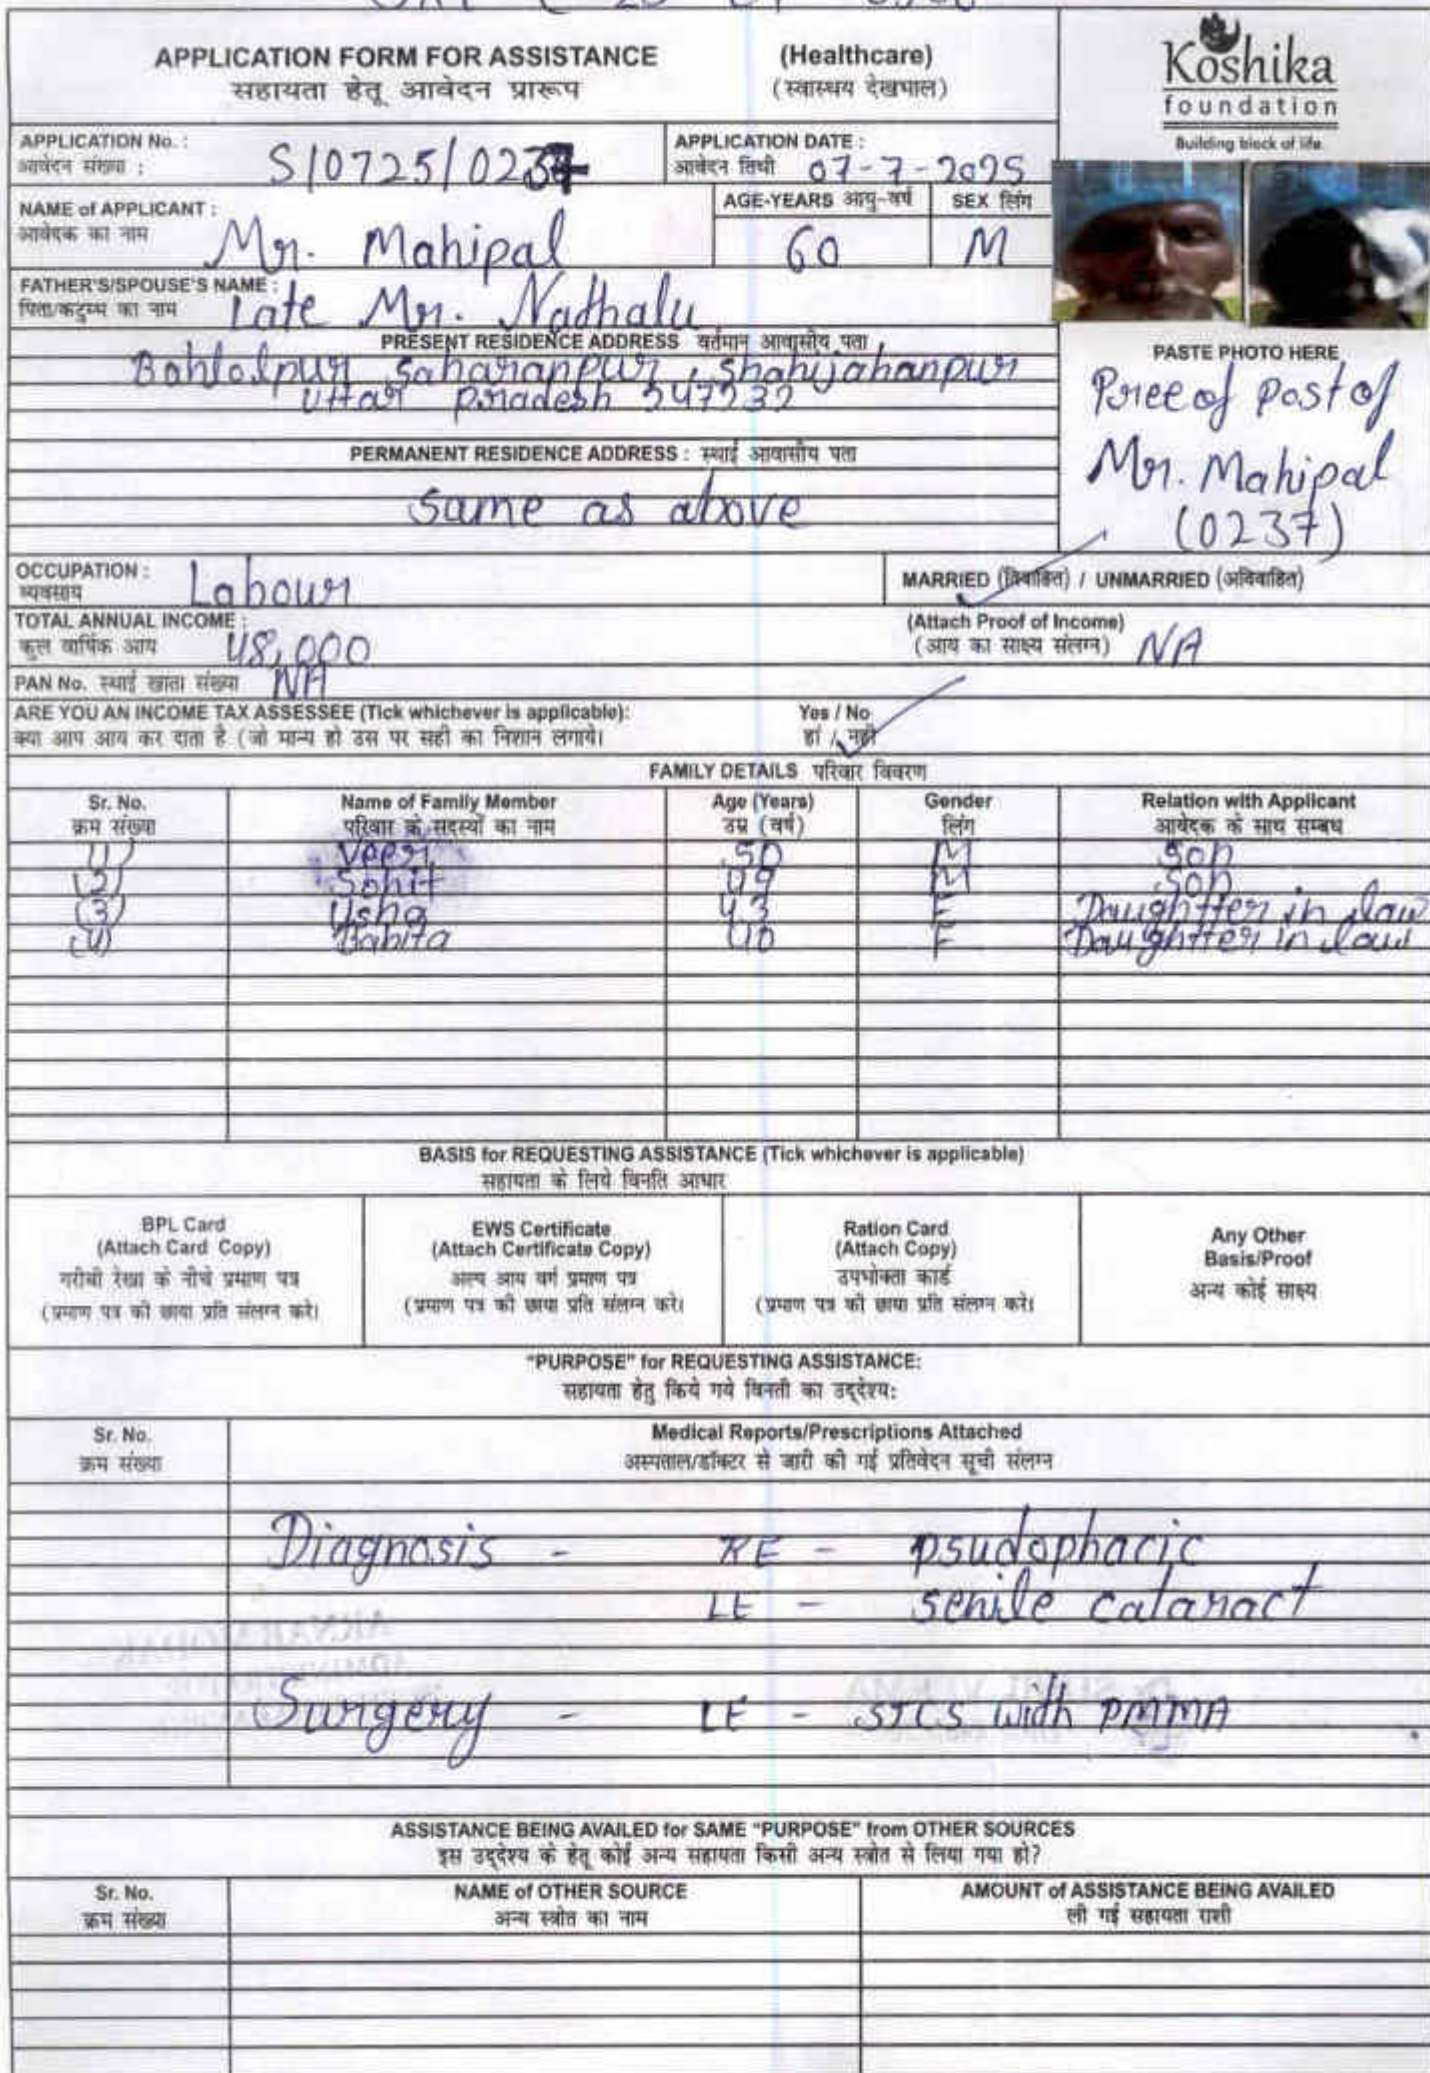 APPLICATION FORM FOR ASSISTANCE (Healthcare)
सहायता हेतू आवेदन प्रारूप (स्वास्थय देखभाल)
Koshika
foundation
Building block of life.
APPLICATION No. :
आवेदन संख्या : S/0725/0237
APPLICATION DATE :
आवेदन तिथी 07-7-2025
NAME of APPLICANT :
आवेदक का नाम Mr. Mahipal
AGE-YEARS आयु-वर्ष
60
SEX लिंग
M
FATHER'S/SPOUSE'S NAME :
पिता/कटुम्ब का नाम Late Mr. Nathalu
PRESENT RESIDENCE ADDRESS वर्तमान आवासीय पता
Bahlolpur Saharanpur, Shahijahanpur
Uttar Pradesh 247232
PASTE PHOTO HERE
Pree of Post of
Mr. Mahipal
(0237)
PERMANENT RESIDENCE ADDRESS : स्थाई आवासीय पता
Same as above
OCCUPATION :
व्यवसाय Labour
MARRIED (विवाहित) / UNMARRIED (अविवाहित)
TOTAL ANNUAL INCOME :
कुल वार्षिक आय 48,000
(Attach Proof of Income)
(आय का साक्ष्य संलग्न) NA
PAN No. स्थाई खाता संख्या NA
ARE YOU AN INCOME TAX ASSESSEE (Tick whichever is applicable): Yes / No
क्या आप आय कर दाता है (जो मान्य हो उस पर सही का निशान लगाये। हां / नही
FAMILY DETAILS परिवार विवरण
Sr. No. Name of Family Member Age (Years) Gender Relation with Applicant
क्रम संख्या परिवार के सदस्यों का नाम उम्र (वर्ष) लिंग आवेदक के साथ सम्बध
(1) Veer 50 M Son
(2) Sohit 49 M Son
(3) Usha 43 F Daughtter in law
(4) Babita 40 F Daughtter in law
BASIS for REQUESTING ASSISTANCE (Tick whichever is applicable)
सहायता के लिये विनति आधार
BPL Card
(Attach Card Copy)
गरीबी रेखा के नीचे प्रमाण पत्र
(प्रमाण पत्र की छाया प्रति संलग्न करे।
EWS Certificate
(Attach Certificate Copy)
अल्प आय वर्ग प्रमाण पत्र
(प्रमाण पत्र की छाया प्रति संलग्न करे।
Ration Card
(Attach Copy)
उपभोक्ता कार्ड
(प्रमाण पत्र की छाया प्रति संलग्न करे।
Any Other
Basis/Proof
अन्य कोई साक्ष्य
"PURPOSE" for REQUESTING ASSISTANCE:
सहायता हेतु किये गये विनती का उद्देश्य:
Sr. No. Medical Reports/Prescriptions Attached
क्रम संख्या अस्पताल/डॉक्टर से जारी की गई प्रतिवेदन सूची संलग्न
Diagnosis - RE - psudophacic
LE - senile cataract
Surgery - LE - SICS with PMMA
ASSISTANCE BEING AVAILED for SAME "PURPOSE" from OTHER SOURCES
इस उद्देश्य के हेतू कोई अन्य सहायता किसी अन्य स्त्रोत से लिया गया हो?
Sr. No. NAME of OTHER SOURCE AMOUNT of ASSISTANCE BEING AVAILED
क्रम संख्या अन्य स्त्रोत का नाम ली गई सहायता राशी